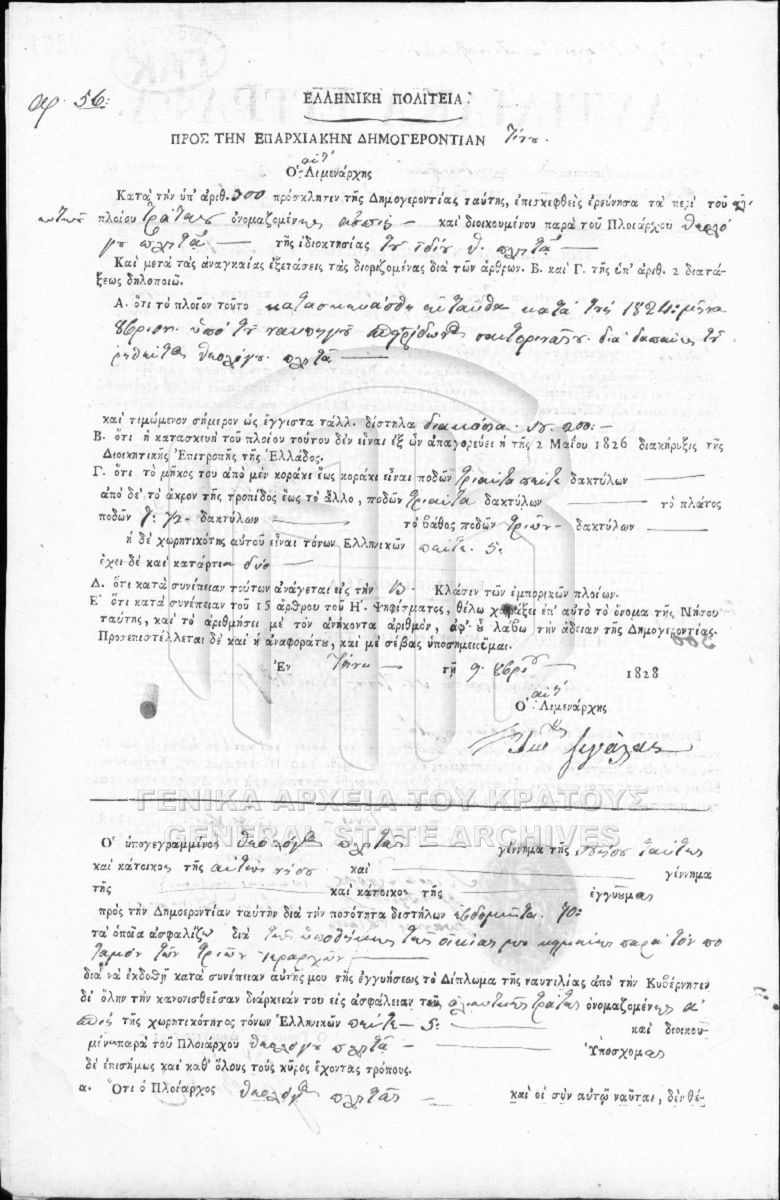 αρ. 56:
ΕΛΛΗΝΙΚΗ ΠΟΛΙΤΕΙΑ.
ΠΡΟΣ ΤΗΝ ΕΠΑΡΧΙΑΚΗΝ ΔΗΜΟΓΕΡΟΝΤΙΑΝ Τήνου.
Ὁ Λιμενάρχης
Κατὰ τὴν ὑπ' ἀριθ. 300 πρόσκλησιν τῆς Δημογεροντίας ταύτης, ἐπισκεφθεὶς ἐρεύνησα τὰ περὶ τοῦ
πλοίου τράτας ὀνομαζομένης καὶ διοικουμένου παρὰ τοῦ Πλοιάρχου
τῆς ἰδιοκτησίας τοῦ ἰδίου
Καὶ μετὰ τὰς ἀναγκαίας ἐξετάσεις τὰς διοριζομένας διὰ τῶν ἄρθρων. Β. καὶ Γ. τῆς ὑπ' ἀριθ. 2 διατά-
ξεως δηλοποιῶ.
Α. ὅτι τὸ πλοῖον τοῦτο κατασκευάσθη ἐνταῦθα κατὰ τὸ 1824: μῆνα
8βριον. ὑπὸ τοῦ ναυπηγοῦ διὰ δαπάνης τοῦ
ῥηθέντος
καὶ τιμώμενον σήμερον ὡς ἔγγιστα τάλλ. δίστηλα διακόσια. Ν. 200:-
Β. ὅτι ἡ κατασκευὴ τοῦ πλοίου τούτου δὲν εἶναι ἐξ ὧν ἀπαγορεύει ἡ τῆς 2 Μαΐου 1826 διακήρυξις τῆς
Διοικητικῆς Ἐπιτροπῆς τῆς Ἑλλάδος.
Γ. ὅτι τὸ μῆκος του ἀπὸ μὲν κοράκι ἕως κοράκι εἶναι ποδῶν τριάντα πέντε δακτύλων
ἀπὸ δὲ τὸ ἄκρον τῆς τροπίδος ἕως τὸ ἄλλο, ποδῶν τριάντα δακτύλων τὸ πλάτος
ποδῶν δακτύλων τὸ βάθος ποδῶν τριῶν - δακτύλων
ἡ δὲ χωρητικότης αὐτοῦ εἶναι τόνων Ἑλληνικῶν πέντε. 5:
ἔχει δὲ καὶ κατάρτια δύο
Δ. ὅτι κατὰ συνέπειαν τούτων ἀνάγεται εἰς τὴν Β. Κλάσιν τῶν ἐμπορικῶν πλοίων.
Ε. ὅτι κατὰ συνέπειαν τοῦ 15 ἄρθρου τοῦ Η'. Ψηφίσματος, θέλω χαράξει ἐπ' αὐτὸ τὸ ὄνομα τῆς Νήσου
ταύτης, καὶ τὸ ἀριθμήσει μὲ τὸν ἀνήκοντα ἀριθμὸν, ἀφ' οὗ λάβω τὴν ἄδειαν τῆς Δημογεροντίας.
Προσεπιστέλλεται δὲ καὶ ἡ ἀναφορά του, καὶ μὲ σέβας ὑποσημειοῦμαι.
Ἐν Τήνῳ τῇ 9. 8βρίου 1828
Ὁ Λιμενάρχης
ΓΕΝΙΚΑ ΑΡΧΕΙΑ ΤΟΥ ΚΡΑΤΟΥΣ
GENERAL STATE ARCHIVES
Ὁ ὑπογεγραμμένος γέννημα τῆς νήσου ταύτης
καὶ κάτοικος τῆς αὐτῆς νήσου καὶ γέννημα
τῆς καὶ κάτοικος τῆς ἐγγυῶμαι
πρὸς τὴν Δημοεροντίαν ταύτην διὰ τὴν ποσότητα διστήλων ἑβδομῆντα. 70:
τὰ ὁποῖα ἀσφαλίζω διὰ τῆς ὑποθήκης τῆς οἰκίας μου παρὰ τὸν πο
ταμὸν τῶν τριῶν ἱεραρχῶν
διὰ νὰ ἐκδοθῇ κατὰ συνέπειαν αὐτῆς μου τῆς ἐγγυήσεως τὸ Δίπλωμα τῆς ναυτιλίας ἀπὸ τὴν Κυβέρνησιν
δι' ὅλην τὴν κανονισθεῖσαν διάρκειάν του εἰς ἀσφάλειαν τῆς ἁλιευτικῆς τράτας ὀνομαζομένης
τῆς χωρητικότητος τόνων Ἑλληνικῶν πέντε - 5: καὶ διοικου-
μένων παρὰ τοῦ Πλοιάρχου Ὑπόσχομαι
δὲ ἐπισήμως καὶ καθ' ὅλους τοὺς κῦρος ἔχοντας τρόπους.
α. Ὅτι ὁ Πλοίαρχος καὶ οἱ σὺν αὐτῷ ναῦται, δὲν θέ-